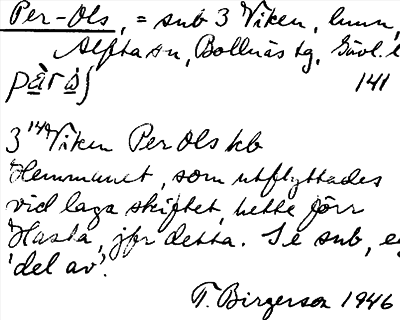 Per-Ols, = sub 3 Viken, hmn,
Alfta sn, Bollnäs tg. Gävl. l
141
3¹⁴⁹ Viken Per Ols kb
Hemmanet, som utflyttades
vid laga skiftet, hette förr
Hasta, jfr detta. Se sub, eg
'del av'.
T. Birgerson 1946